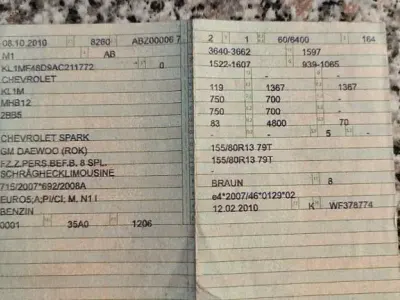 08.10.2010 8260 ABZ00006 7
M1 AB
KL1MF48D9AC211772 0
CHEVROLET
KL1M
MHB12
2BB5
CHEVROLET SPARK
GM DAEWOO (ROK)
FZ.Z.PERS.BEF.B. 8 SPL.
SCHRÄGHECKLIMOUSINE
715/2007*692/2008A
EURO5;A;PI/CI; M, N1 I
BENZIN
0001 35A0 1206
2 1 60/6400 164
3640-3662 1597
1522-1607 939-1065
- -
119 1367 1367
750 700 -
750 700 -
83 4800 70
- 5 -
155/80R13 79T
155/80R13 79T
-
BRAUN 8
e4*2007/46*0129*02
12.02.2010 K WF378774